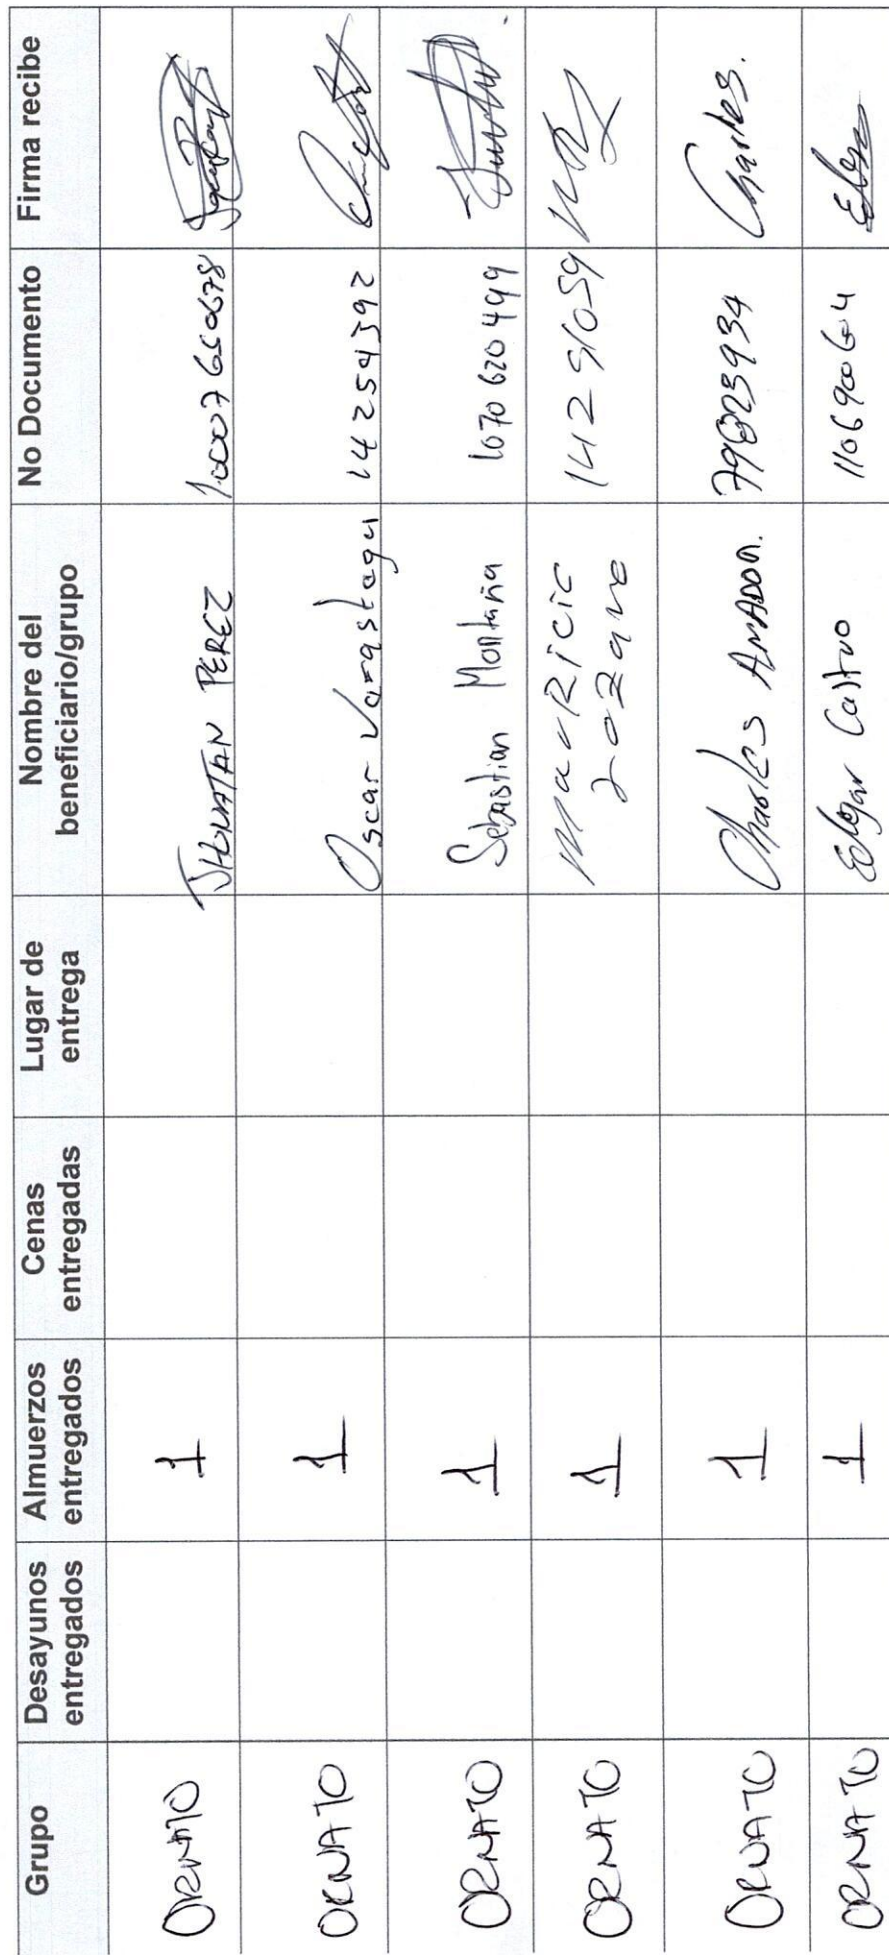 Grupo
Desayunos
entregados
Almuerzos
entregados
Cenas
entregadas
Lugar de
entrega
Nombre del
beneficiario/grupo
No Documento
Firma recibe
ORNATO
1
JHONATAN PEREZ
ORNATO
1
Oscar Varastegui
14254592
ORNATO
1
Sebastian Montaña
1070620499
ORNATO
1
Mauricio
Lozano
14251059
ORNATO
1
Charles AMADOR.
Charles.
ORNATO
1
Edgar Castro